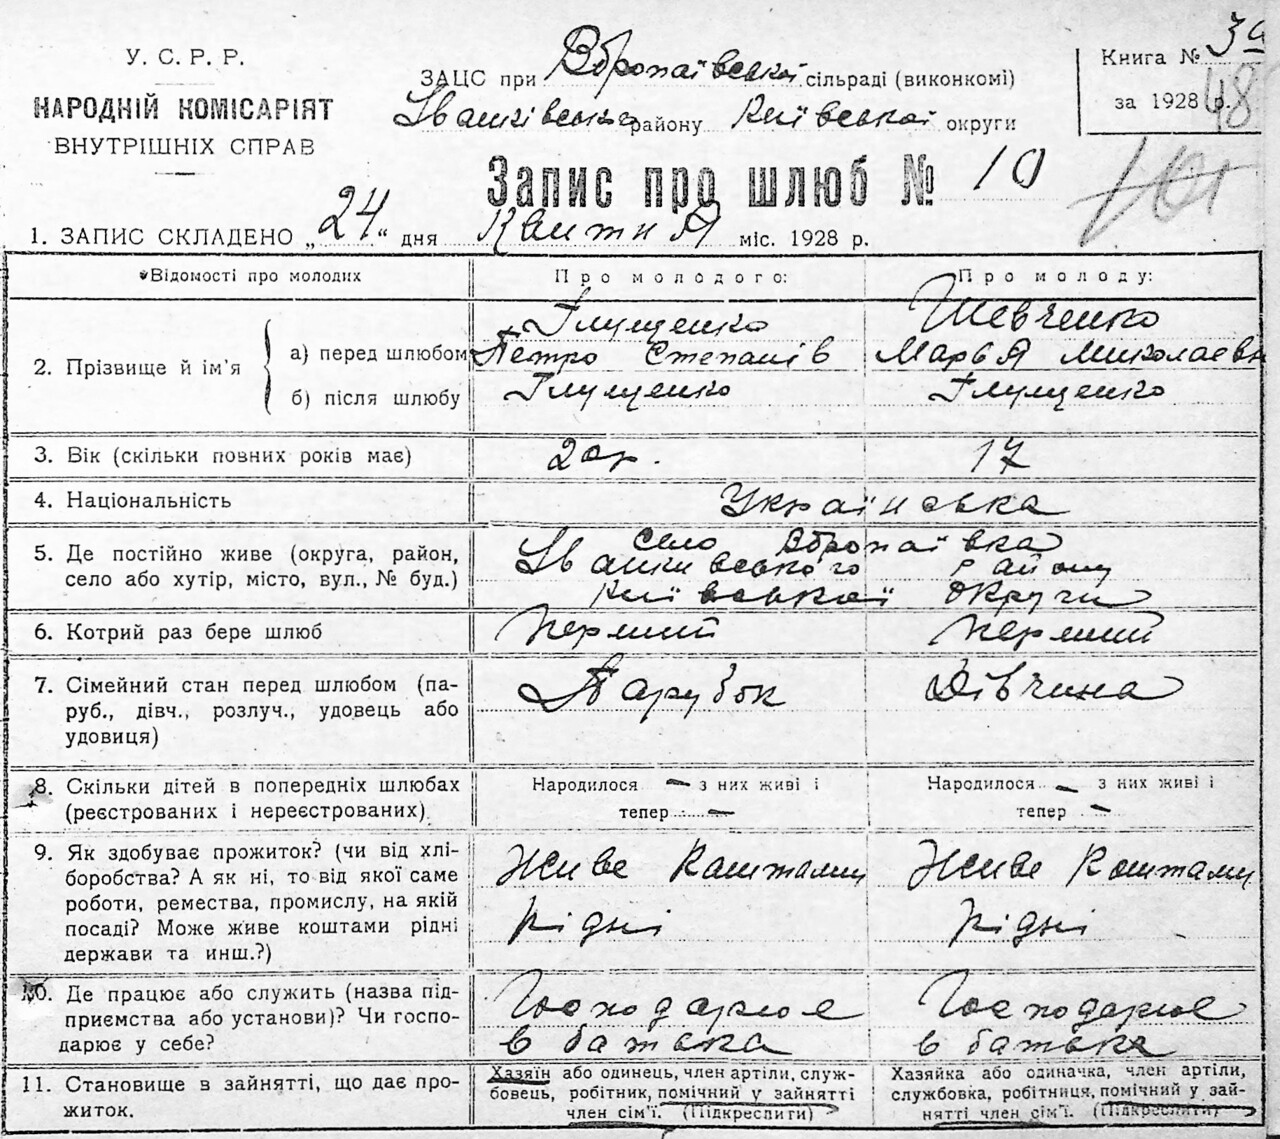 У. С. Р. Р.
НАРОДНІЙ КОМІСАРІЯТ
ВНУТРІШНІХ СПРАВ
ЗАЦС при Вбропаївської сільраді (виконкомі)
району Київської округи
Книга №
за 1928 р.
48
Запис про шлюб № 10
1. ЗАПИС СКЛАДЕНО „24“ дня міс. 1928 р.
Відомості про молодих
Про молодого:
Про молоду:
2. Прізвище й ім’я
а) перед шлюбом
Глущенко
Петро Степанів
Шевченко
Марья Миколаевн
б) після шлюбу
Глущенко
Глущенко
3. Вік (скільки повних років має)
20 р.
17
4. Національність
Українська
5. Де постійно живе (округа, район,
село або хутір, місто, вул., № буд.)
село Вбропаївка
Іванкивського району
Київської округи
6. Котрий раз бере шлюб
Перший
Перший
7. Сімейний стан перед шлюбом (па-
руб., дівч., розлуч., удовець або
удовиця)
Парубок
Дівчина
8. Скільки дітей в попередніх шлюбах
(реєстрованих і нереєстрованих)
Народилося — з них живі і
тепер —
Народилося — з них живі і
тепер —
9. Як здобуває прожиток? (чи від хлі-
боробства? А як ні, то від якої саме
роботи, ремества, промислу, на якій
посаді? Може живе коштами рідні
держави та инш.?)
Живе Коштами
рідні
Живе Коштами
рідні
10. Де працює або служить (назва під-
приємства або установи)? Чи госпо-
дарює у себе?
Господарює
в батька
Господарює
в батька
11. Становище в зайнятті, що дає про-
житок.
Хазяїн або одинець, член артіли, служ-
бовець, робітник, помічний у зайнятті
член сім’ї. (Підкреслити)
Хазяйка або одиначка, член артіли,
службовка, робітниця, помічний у зай-
нятті член сім’ї. (Підкреслити)